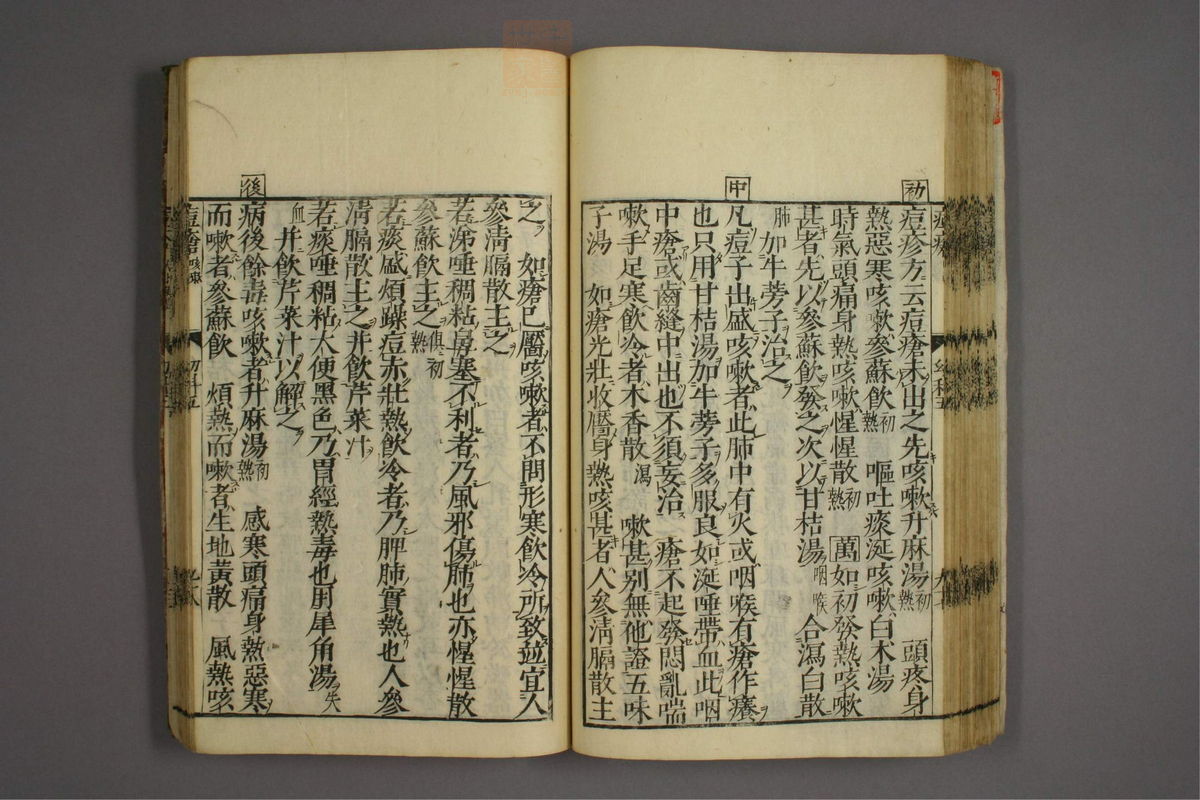 初
痘疹方云痘瘡未出之先咳嗽升麻湯初熱 頭疼身
熱惡寒咳嗽參蘇飲初熱 嘔吐痰涎咳嗽白朮湯
時氣頭痛身熱咳嗽惺惺散初熱 萬如初發熱咳嗽
甚者先以參蘇飲發之次以甘桔湯咽喉 合瀉白散
肺 加牛蒡子治之
中
凡痘子出盛咳嗽者此肺中有火或咽喉有瘡作癢
也只用甘桔湯加牛蒡子多服良如涎唾帶血此咽
中瘡或齒縫中出也不須妄治 瘡不起發悶亂喘
嗽手足寒飲冷者木香散瀉 嗽甚別無他證五味
子湯 如瘡光壯收靨身熱咳甚者人參清膈散主
之 如瘡已靨咳嗽者不問形寒飲冷所致並宜人
參清膈散主之
若涕唾稠粘鼻塞不利者乃風邪傷肺也亦惺惺散
參蘇飲主之俱初熱
若痰盛煩躁痘赤壯熱飲冷者乃脾肺實熱也人參
清膈散主之并飲芹菜汁
若痰唾稠粘大便黑色乃胃經熱毒也用犀角湯失
血 并飲芹菜汁以解之
後
病後餘毒咳嗽者升麻湯初熱 感寒頭痛身熱惡寒
而嗽者參蘇飲 煩熱而嗽者生地黃散 風熱咳
痘瘡咳嗽